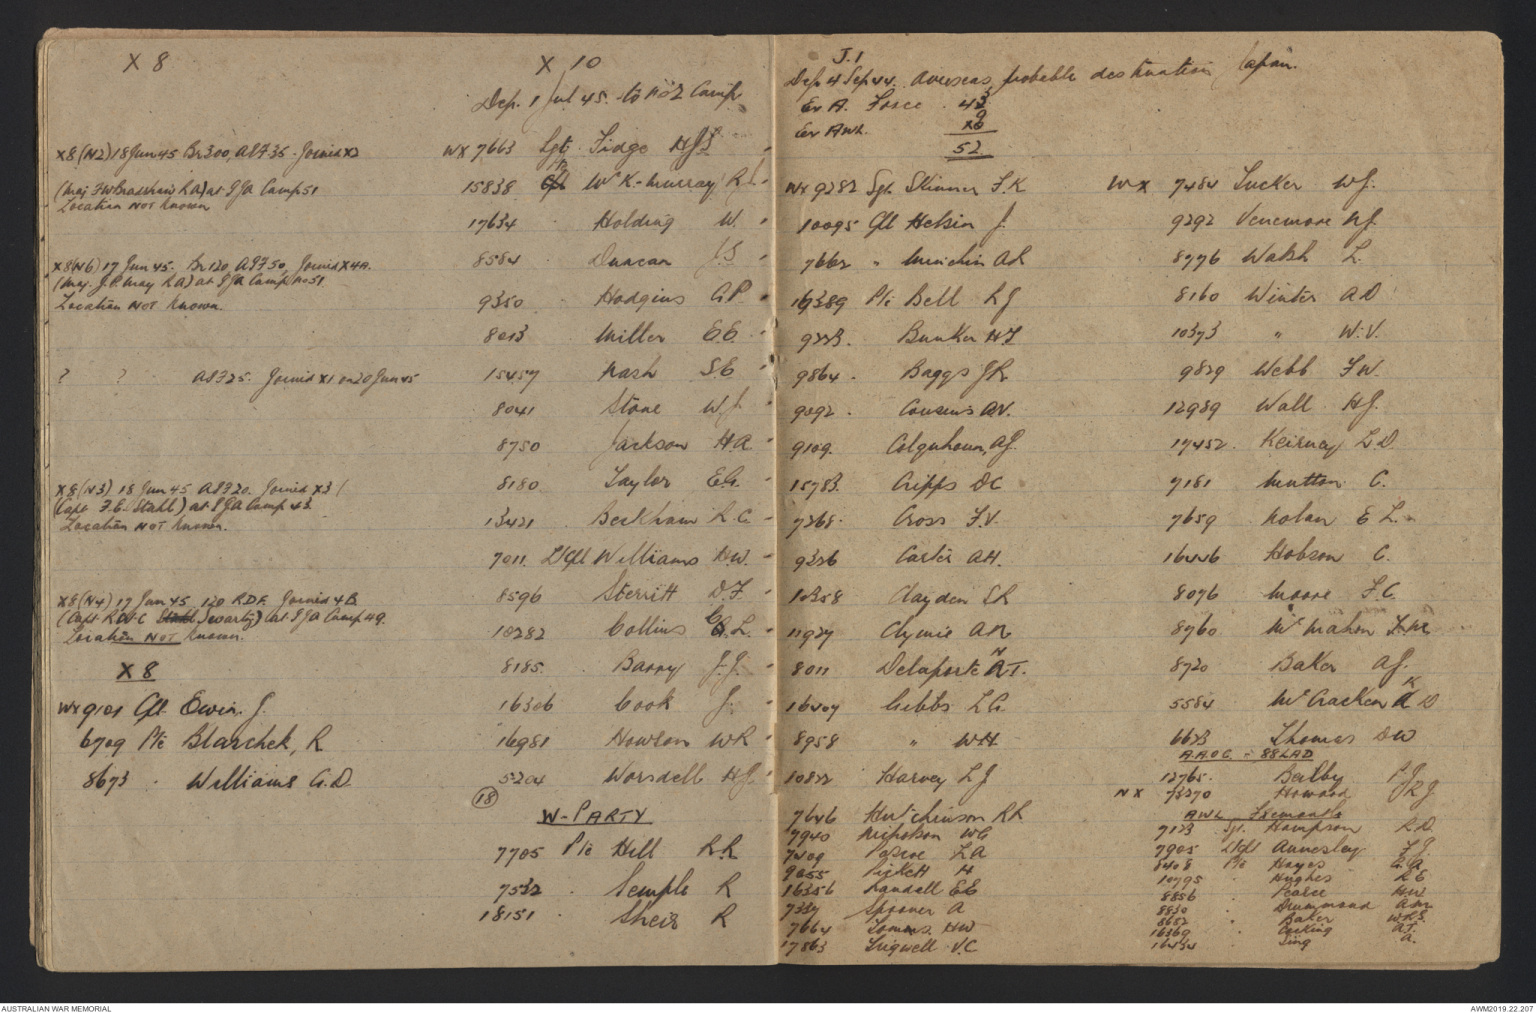 X 8
X8 (N2) 18 Jun 45 Br 300, A&F 35. Joined X3
(Maj F W Bradshaw RA) at IJA Camp 51
Location NOT known
X8 (N6) 17 Jun 45. Br 120, A&F 50, Joined X4A.
(Maj. J. P. May RA) at IJA Camp No 51
Location NOT known.
? ? A&F 25. Joined X1 on 20 Jun 45
X8 (N3) 18 Jun 45 A&F 20. Joined X3
(Capt F.E. Stahl) at IJA Camp 43.
Location NOT known.
X8 (N4) 17 Jun 45 120 R.D.F. Joined 4B
(Capt Swarty) at IJA Camp 49.
Location NOT known.
X 8
WX 9101 Cpl Ewin. J.
6709 Pte Blaschek, R
8673 . Williams G.D.
X 10
Dep. 1 Jul 45. to No 2 Camp
WX 7663 Sgt Tidge
15838 McK-Murray R
17634 Holding W.
8584 . Duncan J.S
9350 . Hodgins G.P.
8013 Miller E.E.
15457 Nash S.E
8041 Stone W.J.
8750 Jackson H.A.
8180 Taylor E.G.
13421 . Beckham R.C.
7011 L/Cpl Williams H.W.
8596 Sterritt D.F.
10282 Collins L.
8185. Barry J.J.
16306 Cook J.
16981 Howson W R
5204 Worsdell H J.
(18)
W-PARTY
7705 Pte Hill R.R.
7532 . Semple R
18151 . Sheir R
J.1
Dep 4 Sep 44. Overseas, probable destination Japan.
Ex A. Force
Ex AWL.
52
WX 9282 Sgt Skinner F. K
10095 Cpl Helsin J.
7662 " Minchin A R
16389 Pte Bell R J
9223. Bunker H T
9864. Baggs J R
9092. Cousens A V.
9109. Colquhoun, A J
15783. Cripps D C
7268. Cross F.V.
9226 Carter A H.
10258 Clayden E R
11927 Clymie A R
8011 Delaporte N T.
16407 Gibbs L G.
8958 " W H
10822 Harvey L J
7646 Hutchinson R R
7940 Nicholson W G
7409 Pascoe L A
9055 Pickett H
16356 Randell E E
7337 Spooner A
7664 Tomus H W
17863 Tugwell V.C
WX 7484 Tucker W J.
9292 Venemore N J.
8776 Walsh L.
8160 Winter A D
10373 " W.V.
9829 Webb F W.
12989 Wall H J.
17452. Keirney L. D
7181 Mutton C.
7659 Nolan E L.
16446 Hobson C.
8076 Moore F. C.
8760. McMahon
8720 Baker A J.
5584 McCracken K D
6623 Thomas D W
A.A.O.C. - 88 LAD
12765. Beilby P J
NX 73270 Howard J R J
AWL Fremantle
7123 Sgt. Hampson R. D.
7905 L/Cpl Annesley
8408 Pte Hayes G A.
10795 . Hughes R E
8856 . Pearce H W
8830 . Drummond
8652 . Baker W R S.
16369 . Cocking A T.
16434 . Sing A.